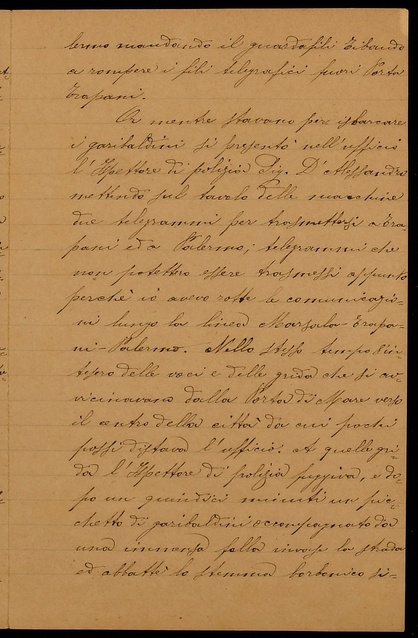 lermo mandando il guardafili Tibaudo
a rompere i fili telegrafici fuori Porta
Trapani.
Or mentre stavano per isbarcare
i garibaldini si presentò nell'ufficio
l'Ispettore di polizia Sig. D'Alessandro
mettendo sul tavolo delle macchine
due telegrammi per trasmettersi a Tra-
pani ed a Palermo; telegrammi che
non potettero essere trasmessi appunto
perchè io avevo rotte le comunicazio-
ni lungo la linea Marsala-Trapa-
ni-Palermo. Nello stesso tempo s'in-
tesero delle voci e delle grida che si av-
vicinavano dalla Porta di Mare verso
il centro della città da cui pochi
passi distava l'ufficio. A quelle gri-
da l'Ispettore di polizia fuggiva, e do-
po un quindici minuti un pic-
chetto di garibaldini accompagnato da
una immensa folla invase la strada
ed abbattè lo stemma borbonico si-